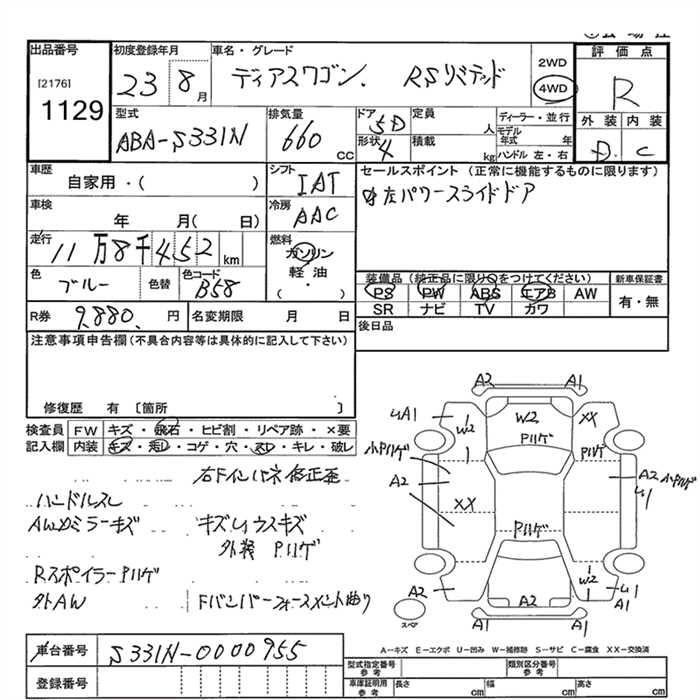 出品番号 [2176] 1129
初度登録年月 23 8月
車名・グレード ディアスワゴン. RSリミテッド
2WD 4WD
評価点 R
外装 内装 D. C
型式 ABA-S331N
排気量 660 CC
ドア 5D
形状 4
定員 人
積載 kg
ディーラー・並行
モデル年式 年
ハンドル 左・右
車歴 自家用・( )
シフト IAT
セールスポイント (正常に機能するものに限ります)
左パワースライドドア
車検 年 月( 日)
冷房 AAC
走行 11万8千452km
燃料 ガソリン 軽油 ( ・ )
色 ブルー 色替 色コード B58
装備品 (純正品に限り○をつけてください)
新車保証書
PS PW ABS エアB AW
有・無
SR ナビ TV カワ
R券 9,880. 円 名変期限 月 日
後日品
注意事項申告欄(不具合内容等は具体的に記入して下さい)
修復歴 有 〔箇所 〕
検査員 FW キズ・飛石・ヒビ割・リペア跡・×要
記入欄 内装 キズ・汚レ・コゲ・穴・スレ・キレ・破レ
ハンドルスレ
キズ
外装 Pハゲ
Rスポイラー Pハゲ
外AW
A2 A1
A1 W2 W2 XX
Pハゲ Pハゲ
小Pハゲ A2
A2 小Pハゲ
XX
Pハゲ
A2 A2 W2 A1
スペア A1 A1
A-キズ E-エクボ U-凹み W-補修跡 S-サビ C-腐食 XX-交換済
車台番号 S331N-0000955
登録番号
型式指定番号 参考 類別区分番号 参考
車庫証明用 参考 長さ cm 幅 cm 高さ cm